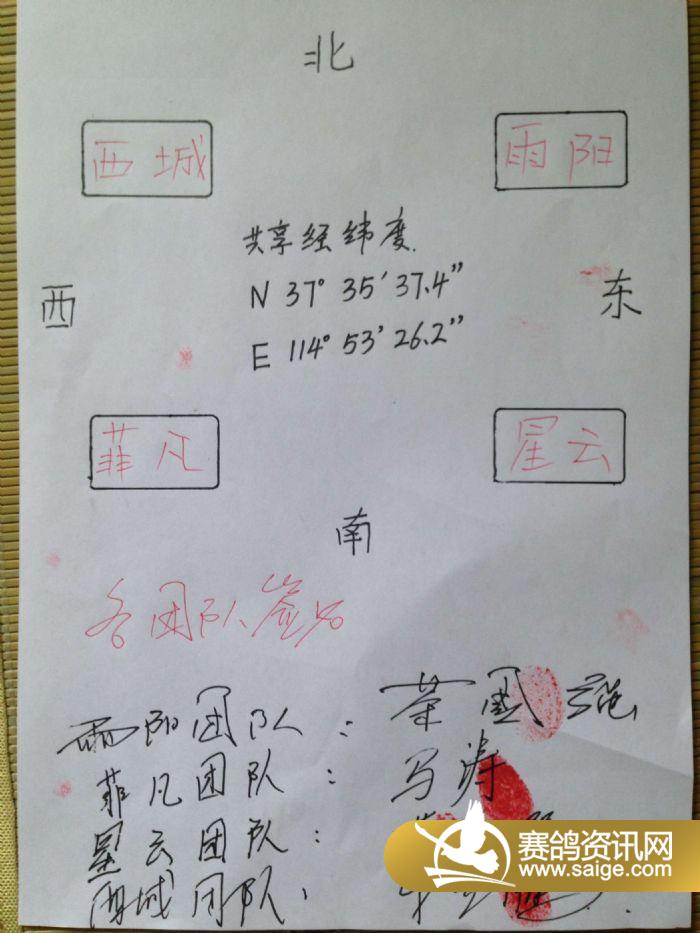 北
西城
雨阳
共享经纬度
N 37° 35′ 37.4″
E 114° 53′ 26.2″
西
东
菲凡
星云
南
各团队签名
雨阳团队：
菲凡团队：马涛
星云团队：
西城团队：
赛鸽资讯网
www.saige.com